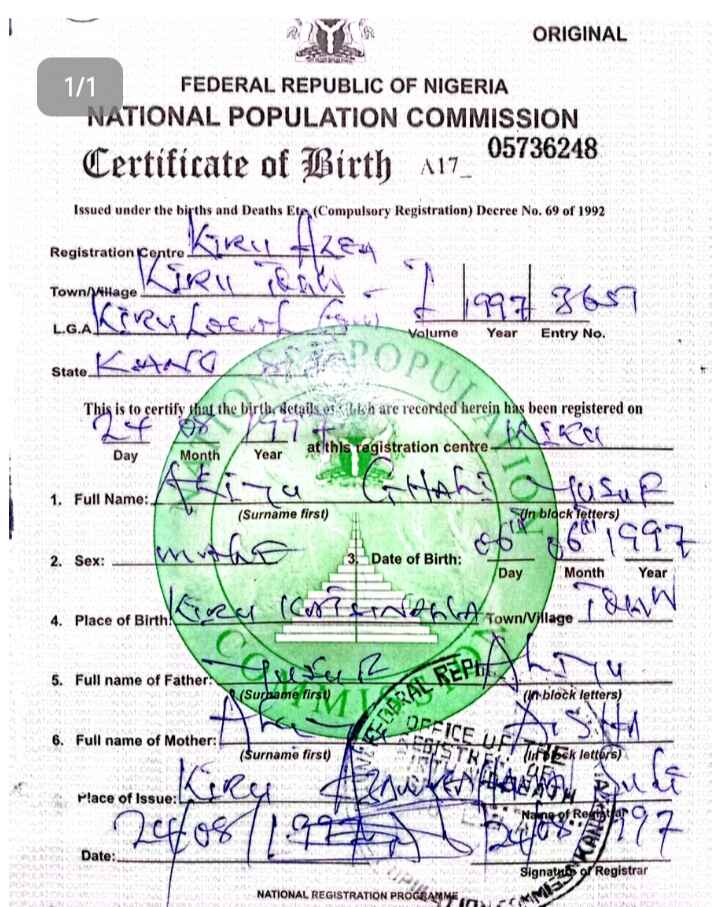 ORIGINAL
1/1
FEDERAL REPUBLIC OF NIGERIA
NATIONAL POPULATION COMMISSION
Certificate of Birth A17_ 05736248
Issued under the births and Deaths Etc, (Compulsory Registration) Decree No. 69 of 1992
Registration Centre KIRU
Town/Village KIRU TOWN
L.G.A KIRU LOCAL
I 1997
Volume Year Entry No.
State KANO
This is to certify that the birth, details of which are recorded herein has been registered on
24 08 1997 at this registration centre KIRU
Day Month Year
1. Full Name: ALIYU YUSUF
(Surname first) (In block letters)
2. Sex: MALE 3. Date of Birth: 06th 06th 1997
Day Month Year
4. Place of Birth: KIRU Town/Village TOWN
5. Full name of Father: YUSUF ALIYU
(Surname first) (In block letters)
6. Full name of Mother: AISHA
(Surname first) (In block letters)
Place of Issue: KIRU
Name of Registrar
Date: 24/08/1997 24/08/1997
Signature of Registrar
NATIONAL REGISTRATION PROGRAMME
NATIONAL POPULATION COMMISSION
FEDERAL REPU
OFFICE OF THE